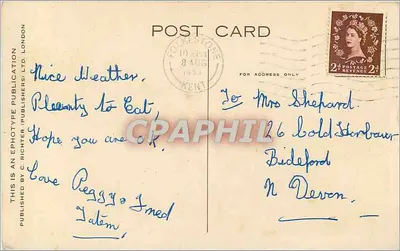 POST CARD
FOLKESTONE
8 AUG
KENT
FOR ADDRESS ONLY
2½ POSTAGE REVENUE 2d
THIS IS AN EPHOTYPE PUBLICATION
PUBLISHED BY C. RICHTER (PUBLISHERS) LTD. LONDON
Nice Weather.
Pleanty to Eat.
Hope you are O.K.
Love Peggy & Fred
Tatem.
To Mrs Shephard.
26 Cold Harbour
Bideford
N Devon.
CPAPHIL